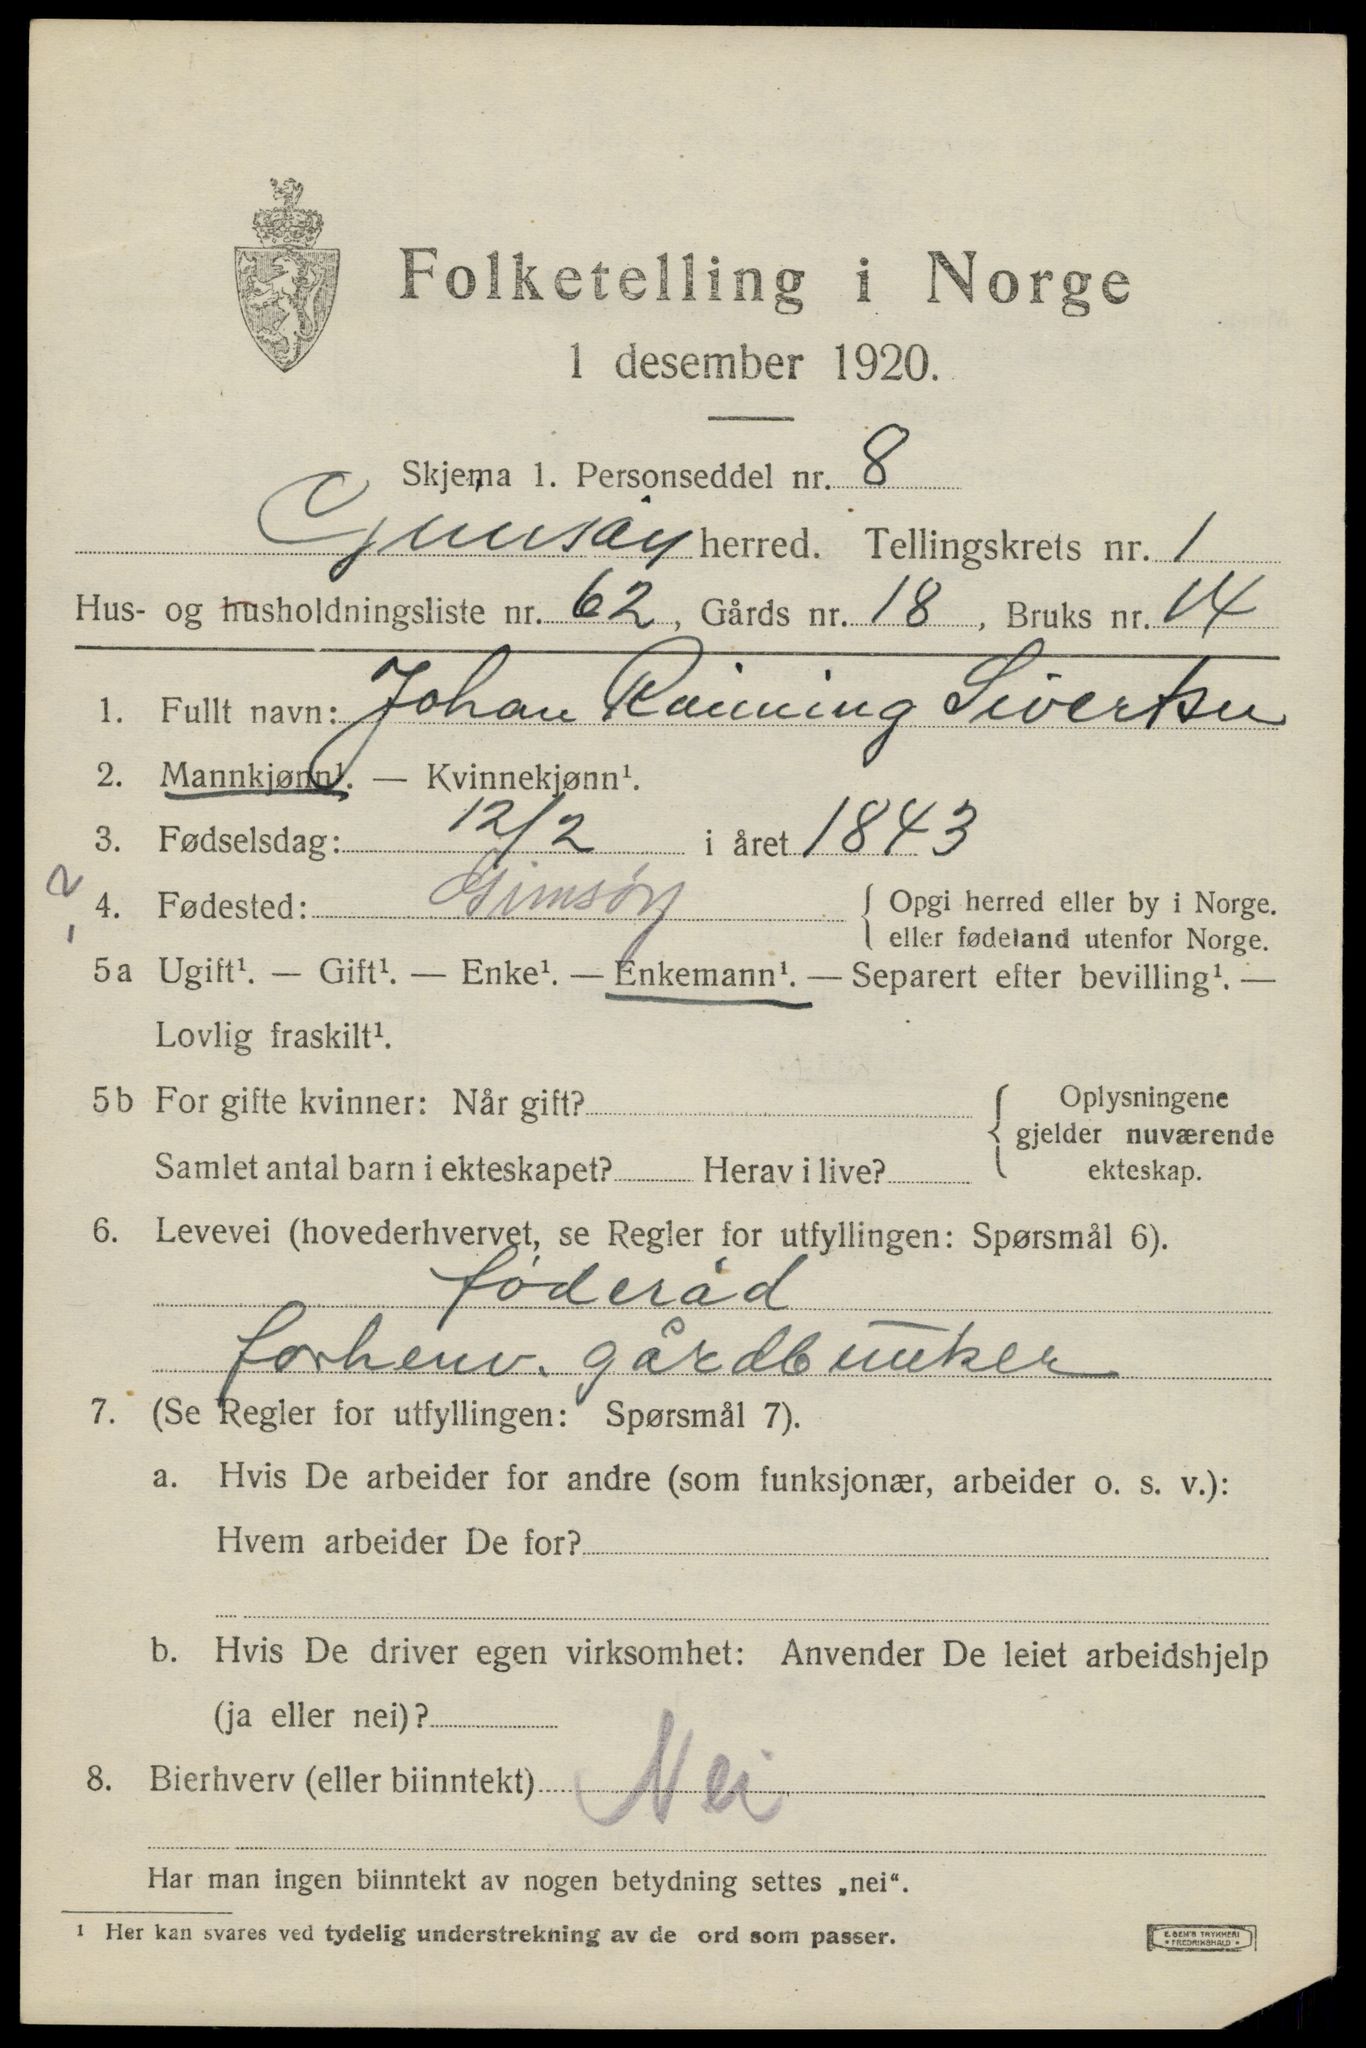 Folketelling i Norge
1 desember 1920.
Skjema 1. Personseddel nr. 8
Gimsøy herred. Tellingskrets nr. 1
Hus- og husholdningsliste nr. 62, Gårds nr. 18, Bruks nr. 14
1. Fullt navn: Johan Rønning Sivertsen
2. Mannkjønn¹. — Kvinnekjønn¹.
3. Fødselsdag: 12/2 i året 1843
4. Fødested: Gimsøy { Opgi herred eller by i Norge.
eller fødeland utenfor Norge.
5a Ugift¹. — Gift¹. — Enke¹. — Enkemann¹. — Separert efter bevilling¹. —
Lovlig fraskilt¹.
5b For gifte kvinner: Når gift? { Oplysningene
gjelder nuværende
Samlet antal barn i ekteskapet? Herav i live? ekteskap.
6. Levevei (hovederhvervet, se Regler for utfyllingen: Spørsmål 6).
føderåd
forhenv. gårdbruker
7. (Se Regler for utfyllingen: Spørsmål 7).
a. Hvis De arbeider for andre (som funksjonær, arbeider o. s. v.):
Hvem arbeider De for?
b. Hvis De driver egen virksomhet: Anvender De leiet arbeidshjelp
(ja eller nei)?
8. Bierhverv (eller biinntekt) Nei
Har man ingen biinntekt av nogen betydning settes „nei“.
¹ Her kan svares ved tydelig understrekning av de ord som passer.
E. SEM'S TRYKKERI
FREDRIKSHALD